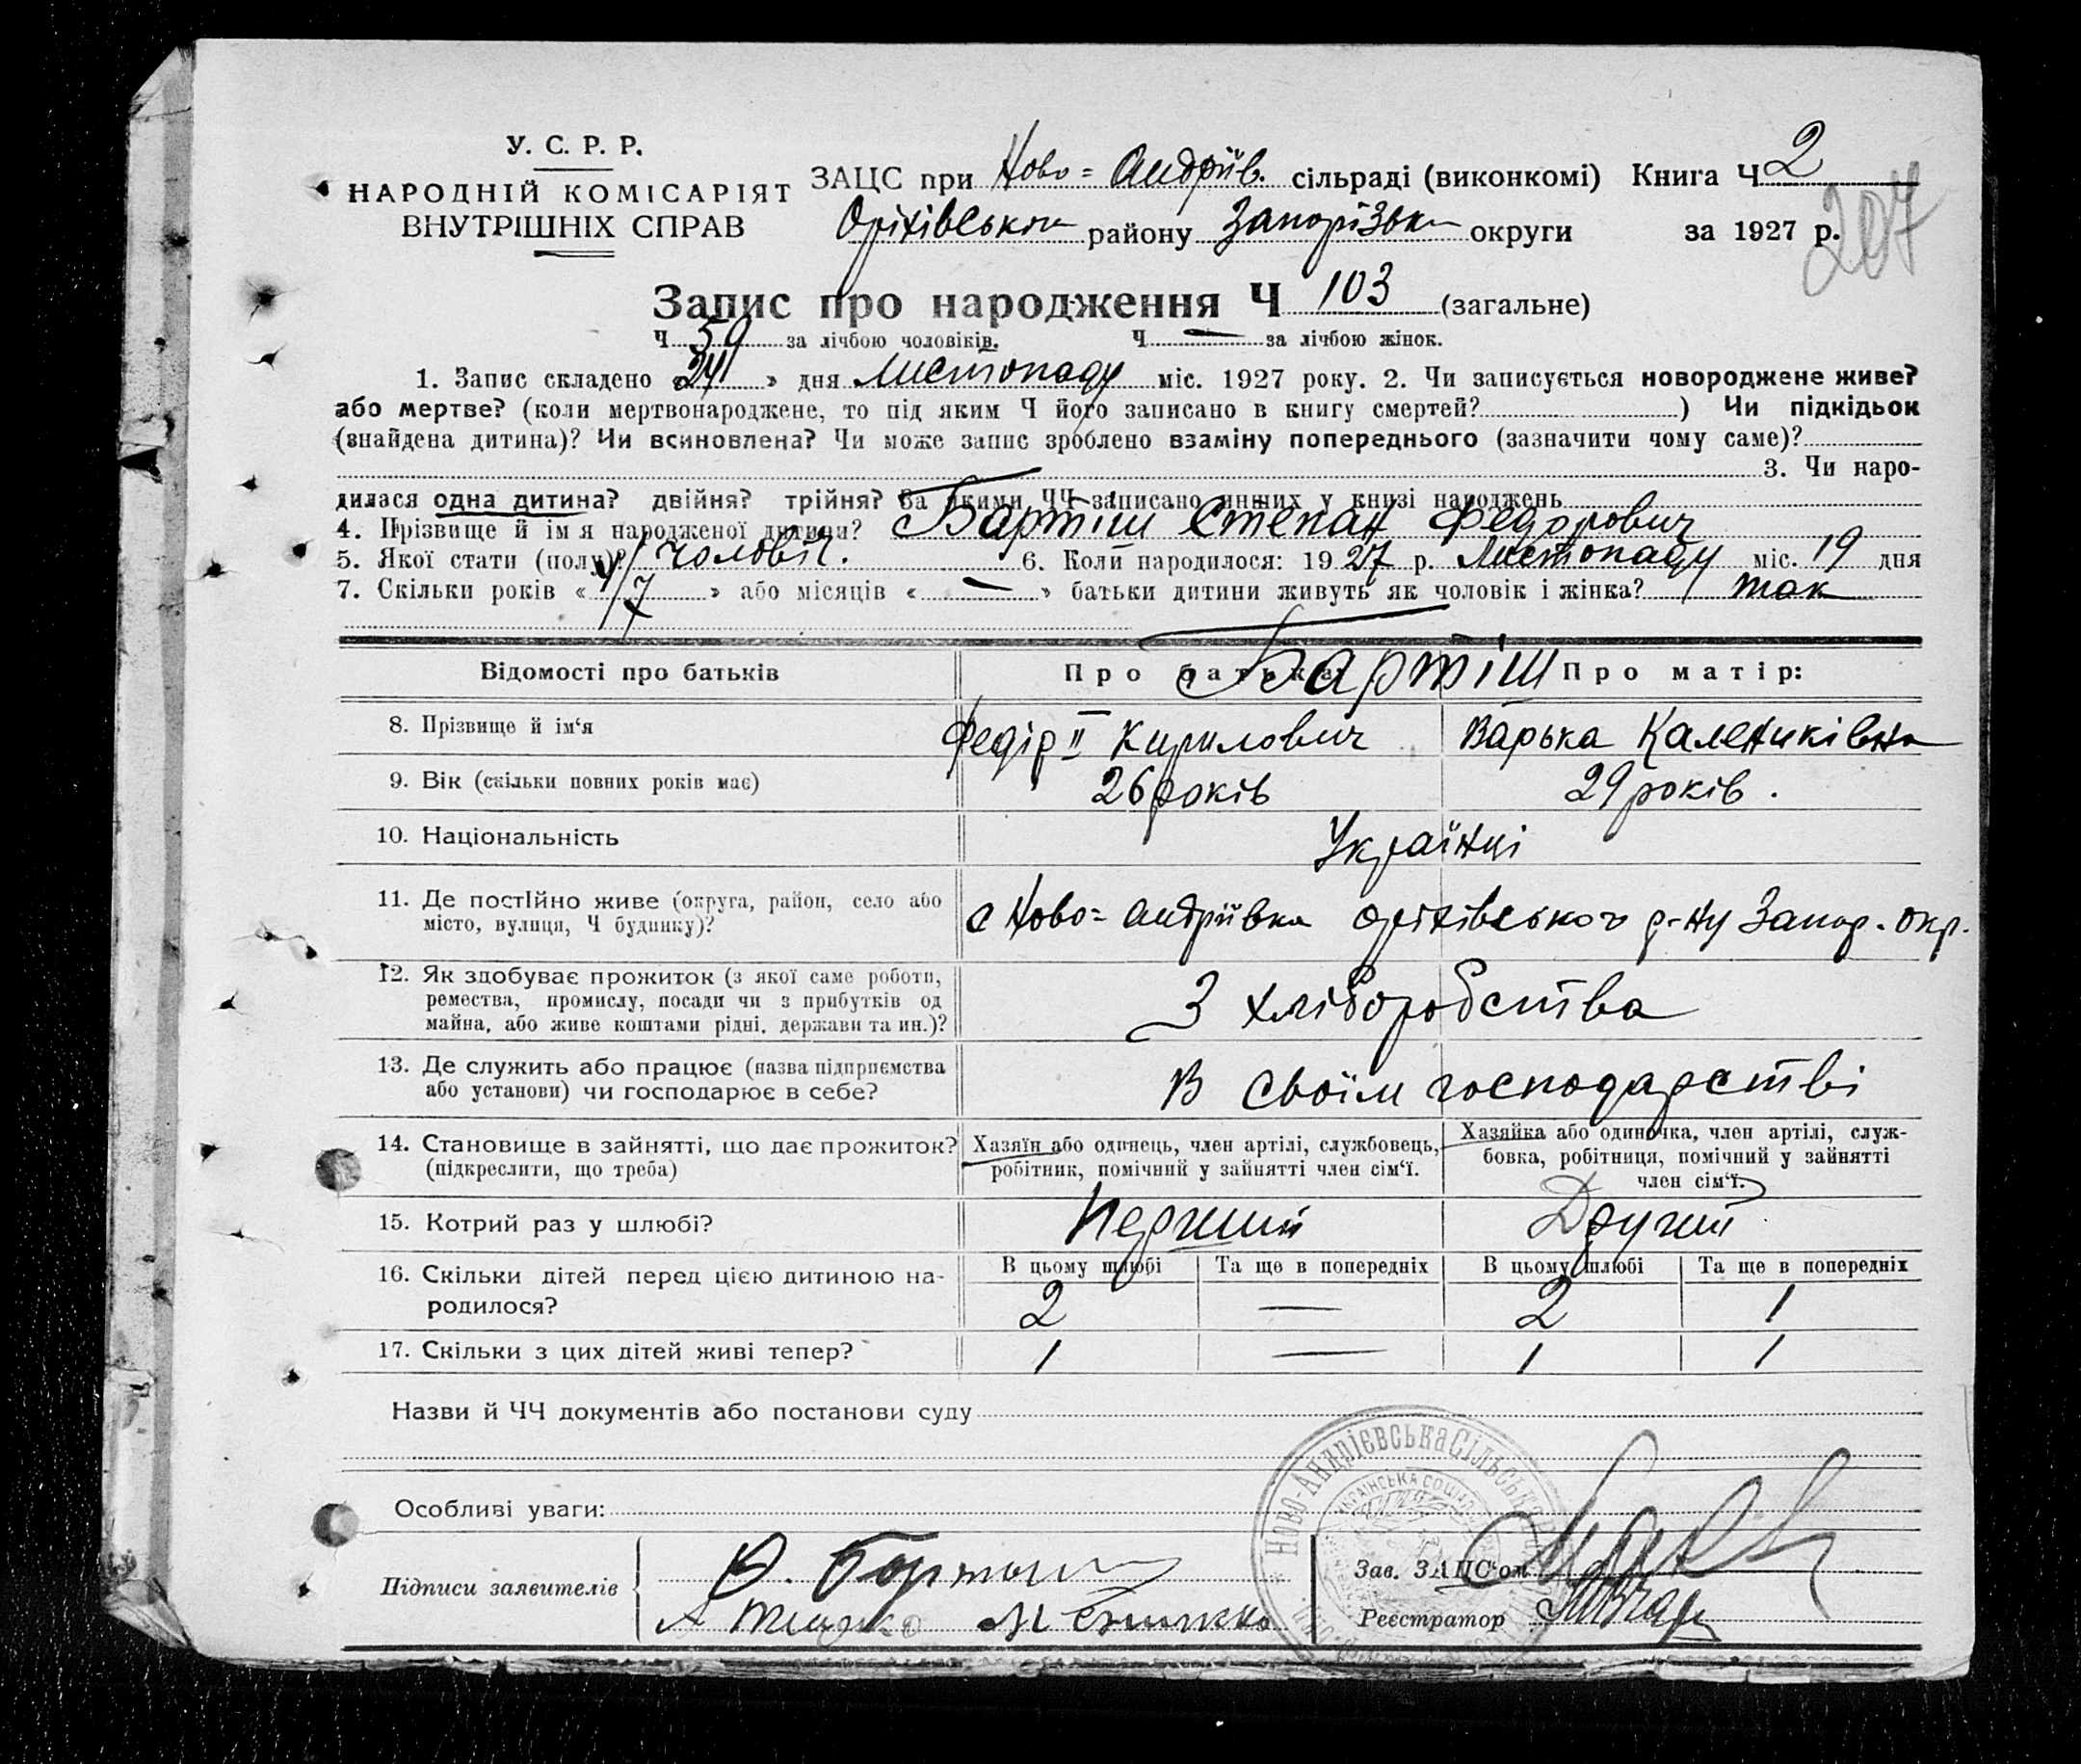 У. С. Р. Р.
НАРОДНІЙ КОМІСАРІЯТ
ВНУТРІШНІХ СПРАВ
ЗАЦС при Ново=Андріїв. сільраді (виконкомі) Книга Ч 2
Оріхівського району Запорізьк округи за 1927 р.
207
Запис про народження Ч 103 (загальне)
Ч 59 за лічбою чоловіків. Ч — за лічбою жінок.
1. Запис складено «24» дня Листопаду міс. 1927 року. 2. Чи записується новороджене живе?
або мертве? (коли мертвонароджене, то під яким Ч його записано в книгу смертей? ) Чи підкідьок
(знайдена дитина)? Чи всиновлена? Чи може запис зроблено взаміну попереднього (зазначити чому саме)?
3. Чи наро-
дилася одна дитина? двійня? трійня? За якими ЧЧ записано инших у книзі народжень
4. Прізвище й ім'я народженої дитини? Бартіш Степан Федорович
5. Якої стати (полу)? чоловіч. 6. Коли народилося: 1927 р. Листопаду міс. 19 дня
7. Скільки років « 7 » або місяців « — » батьки дитини живуть як чоловік і жінка? так
Відомості про батьків Про батька: Про матір:
Бартіш
8. Прізвище й ім'я Федір II Кирилович Варька Калениківна
9. Вік (скільки повних років має) 26 років 29 років.
10. Національність Українці
11. Де постійно живе (округа, район, село або
місто, вулиця, Ч будинку)? с Ново=Андріївка Оріхівського р-ну Запор. окр.
12. Як здобуває прожиток (з якої саме роботи,
ремества, промислу, посади чи з прибутків од
майна, або живе коштами рідні, держави та ин.)? З хліборобства
13. Де служить або працює (назва підприємства
або установи) чи господарює в себе? В своїм господарстві
14. Становище в зайнятті, що дає прожиток?
(підкреслити, що треба)
Хазяїн або одинець, член артілі, службовець,
робітник, помічний у зайнятті член сім'ї.
Хазяйка або одиночка, член артілі, служ-
бовка, робітниця, помічний у зайнятті
член сім'ї.
15. Котрий раз у шлюбі? Перший Другий
16. Скільки дітей перед цією дитиною на-
родилося?
В цьому шлюбі Та ще в попередніх В цьому шлюбі Та ще в попередніх
2 — 2 1
17. Скільки з цих дітей живі тепер? 1 — 1 1
Назви й ЧЧ документів або постанови суду
Особливі уваги:
Підписи заявителів
Зав. ЗАЦС'ом
Реєстратор
Ново-Андрієвська Сільська